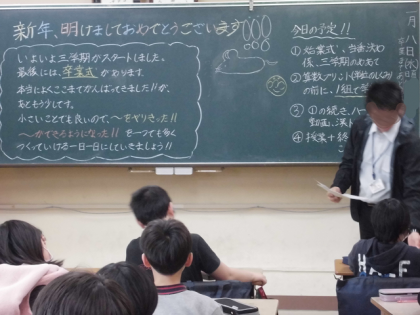 新年、明けましておめでとうございます!!!
いよいよ三学期がスタートしました。
最後には、卒業式があります。
本当によくここまでがんばってきました!!が、
あともう少しです。
小さいことも良いので、〜をやりきった!!
〜ができるようになった!!を一つでも多く
つくっていける一日一日にしていきましょう!!
今日の予定!!
①始業式
係、三学期のめあて
②算数プリント
の前に、1組で
③①の続き、
動画、漢
④授業
月
八
日
(木)
HALF